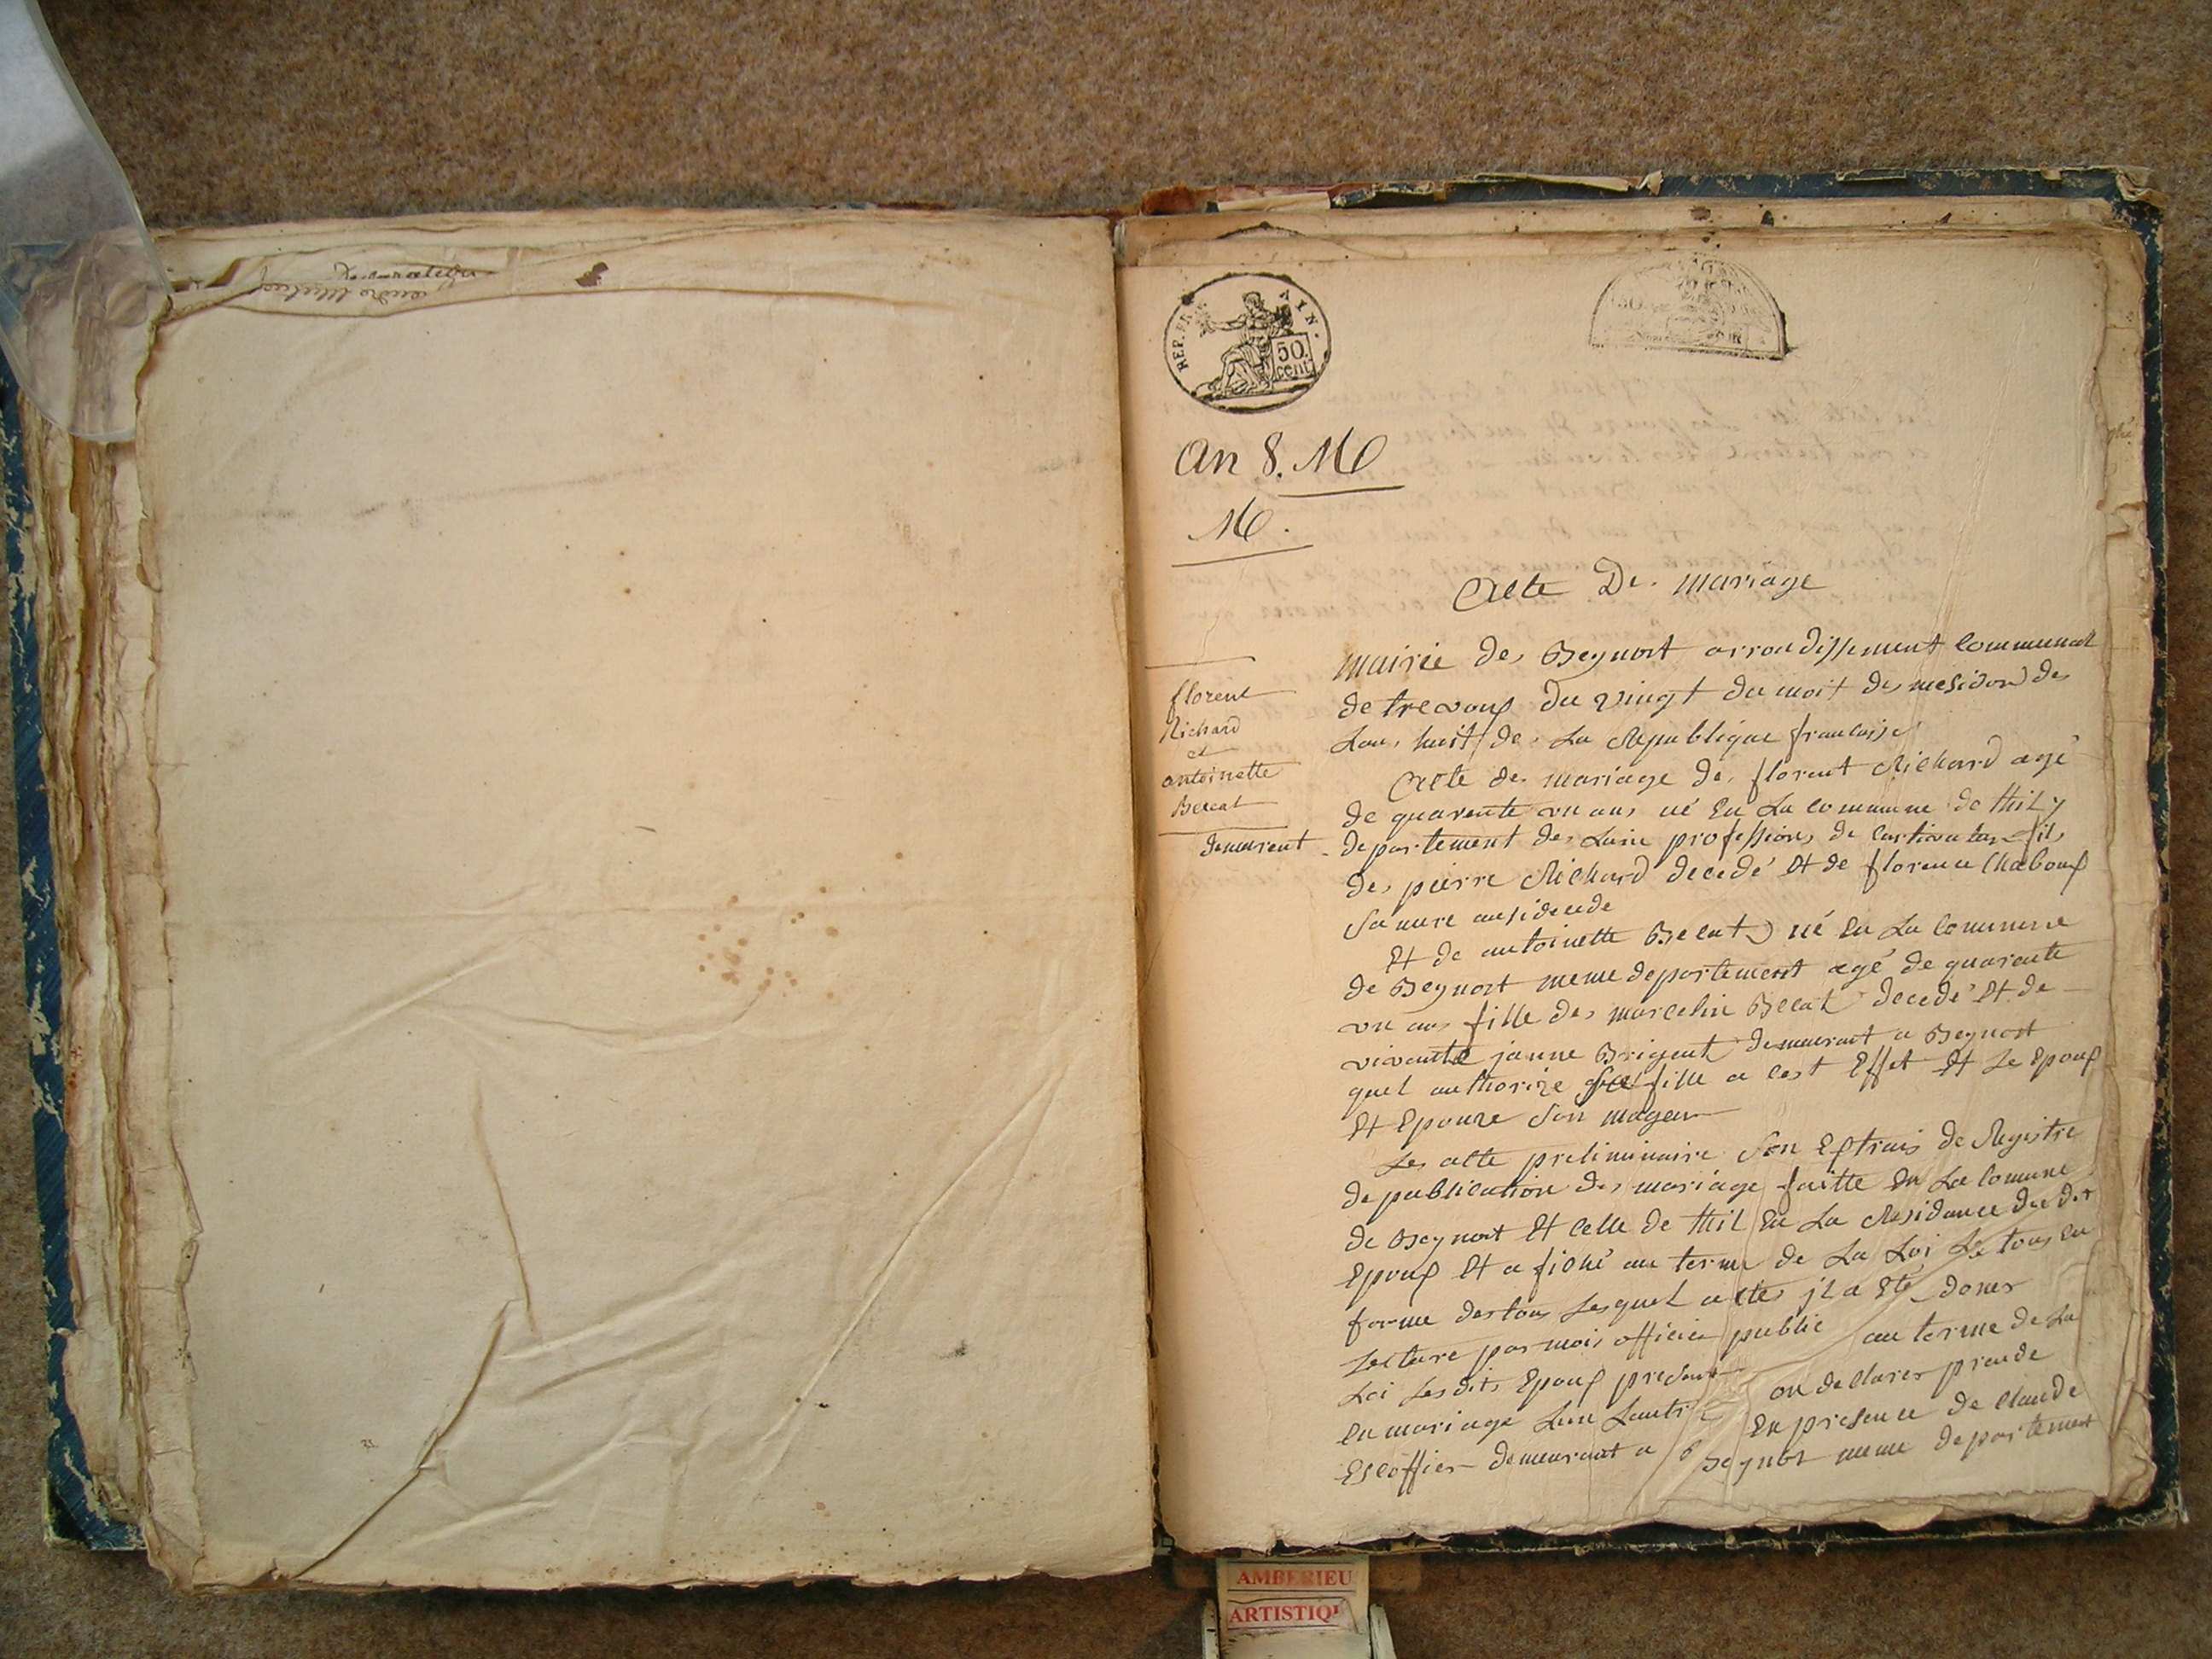 REP. FRA AIN.
50
cent
An 8. M
M.
Acte De mariage
florent
Richard
et
antoinette
Beccat
demeurent
mairie de Beynost arrondissement Communal
de trevoux du vingt du moit de mesidor de
Lan huit de La Republique francaise
Acte de mariage de florent Richard agé
de quarente un ans né En La commune de thil
departement de Lain profession de Cultivateur fils
de pierre Richard decedé Et de florence Chaboux
Sa mere
Et de antoinette Becat né En La Commune
de Beynost meme departement agé de quarente
un ans fille de marcelin Becat decedé Et de
vivante janne Brigent demeurant a Beynost
quel authorize fille a cest Effet Et Le Epoux
Et Epouze Son mageur
Les acte preliminaire Son Extrais de Registre
de publication de mariage faitte En La Comune
de Beynost Et celle de thil En La Residance du dit
Epoux Et a fiché au terme de La Loi Le tous en
forme destous Lesquel actes jl a Eté doner
Lecture par mois officier public au terme de La
Loi Les dits Epoux presant on declarer prende
En mariage Lun Lautre En presence de Claude
Escoffier demeurant a Beynost meme departement
AMBERIEU
ARTISTIQ